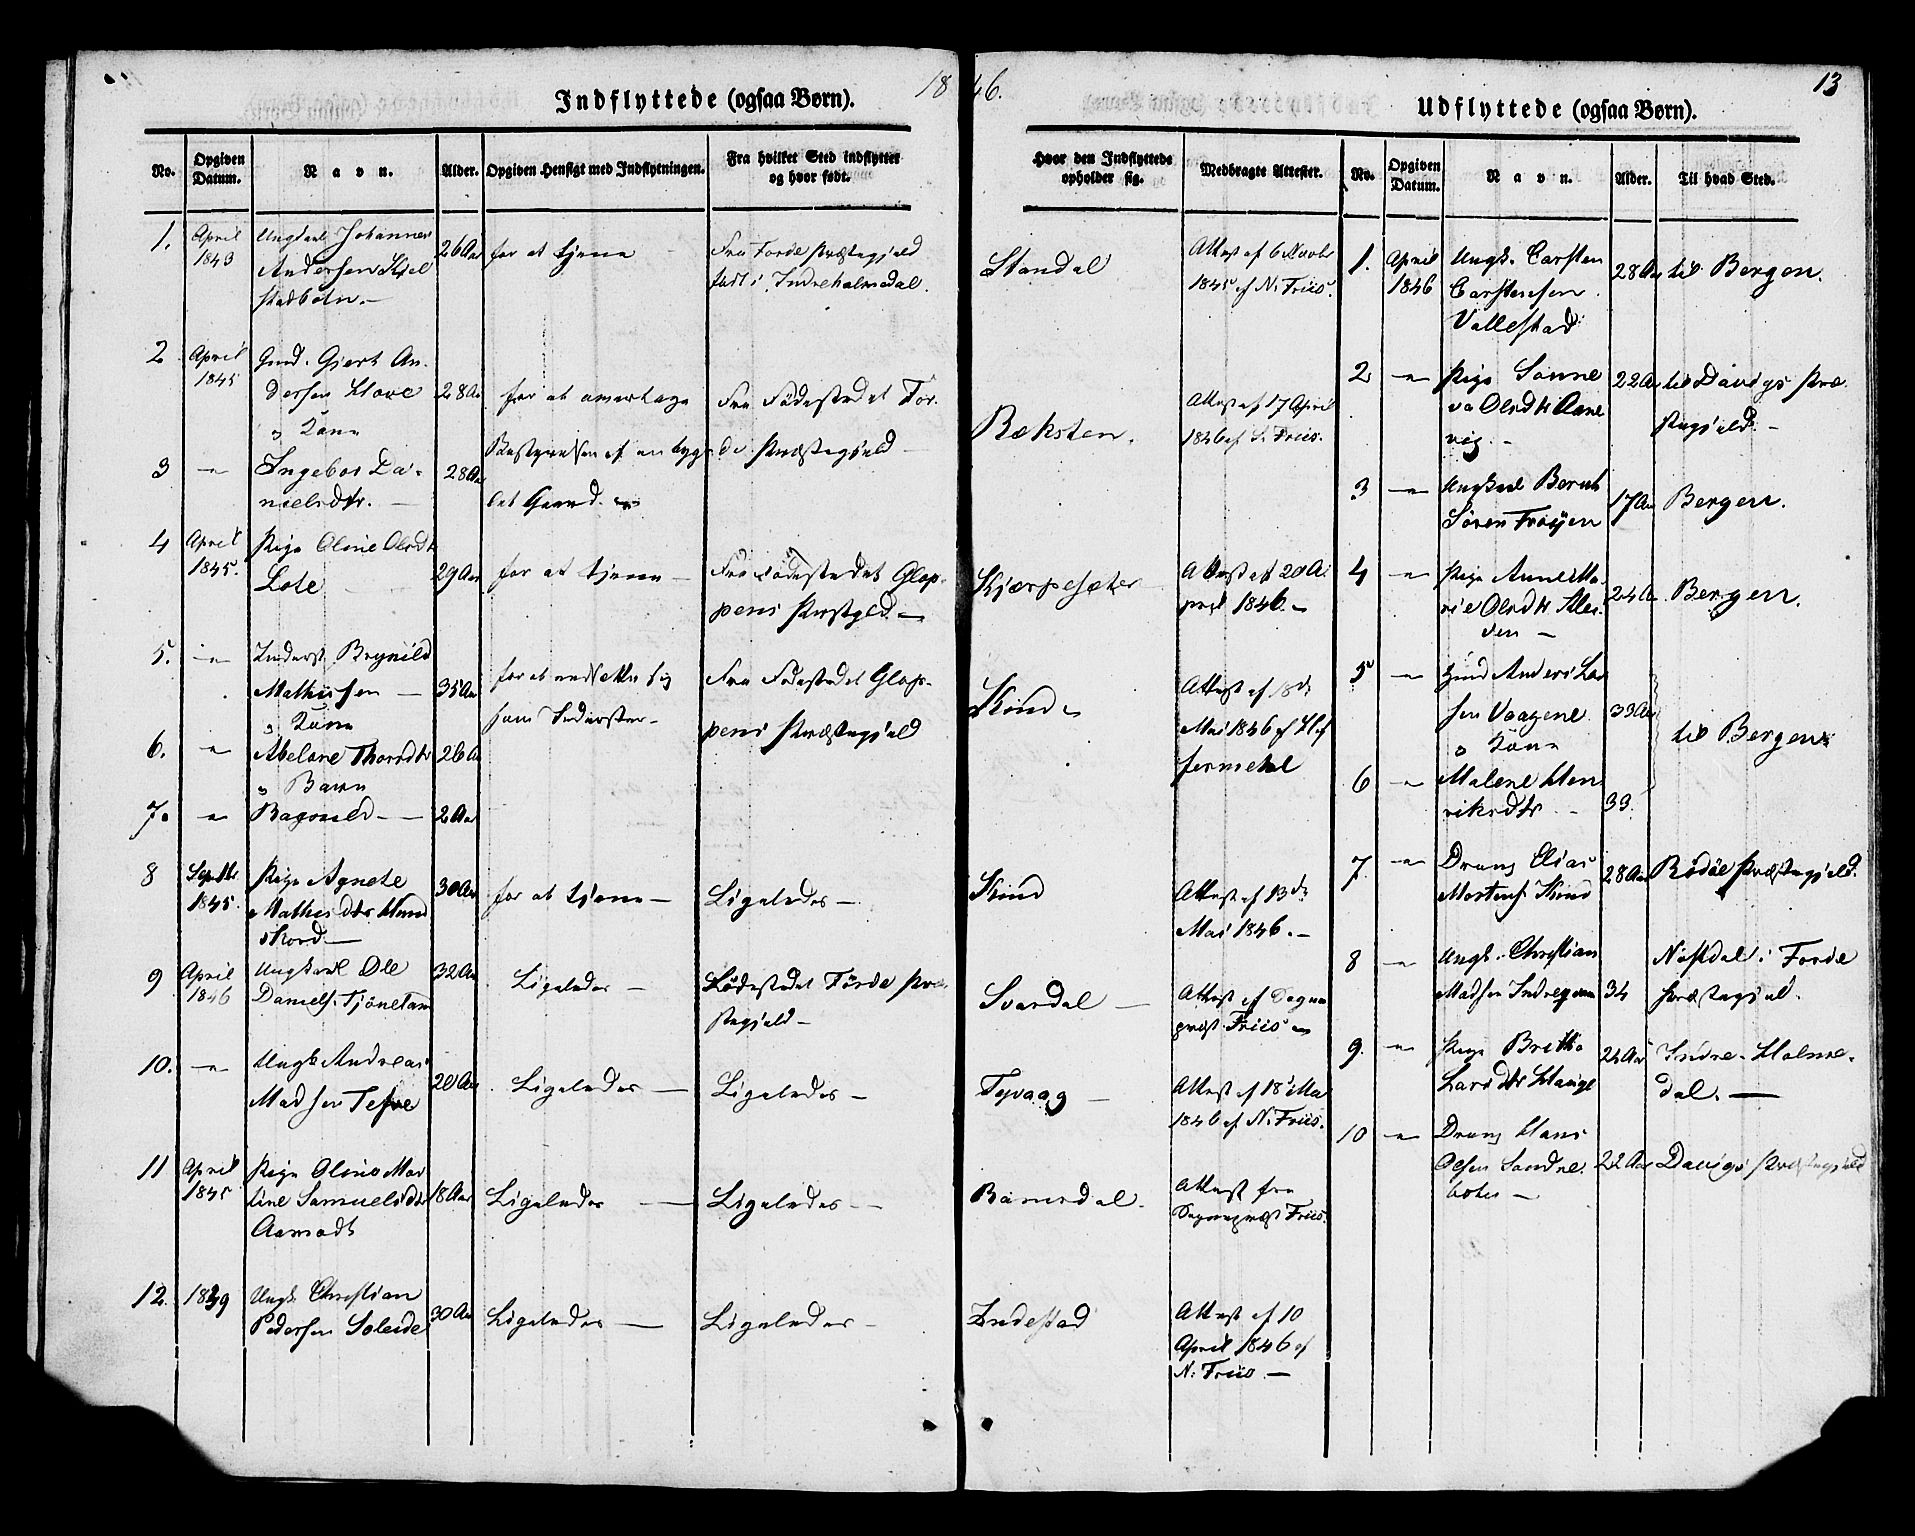 1846.
13
Indflyttede (ogsaa Børn).
No.
Opgiven Datum.
Navn.
Alder.
Opgiven Hensigt med Indflytningen.
Fra hvilket Sted indflyttet og hvor født.
Hvor den Indflyttede opholder sig.
Medbragte Attester.
1. April 1843
Ungkarl Johannes
Andersen
26 Aar
for at tjene
Fra Førde Præstegjeld
født i Indreholmedal.
Standal
Attest af 6 Novbr
1845 af N: Friis.
2 April 1845
Gmd. Gjert An-
dersen Hove
28 Aar
" Kone
for at overtage
Bestyrelsen af en byg-
let Gaard.
Fra Fødestedet Før-
de Præstegjeld
Bæksten.
Attest af 17 April
1846 af N. Friis.
3 —"—
Ingebor Da-
nielsdtr.
28 Aar
4 April 1845.
Pige Oline Olsdtr
Lote
29 Aar
for at tjene
Fra Fødestedet Glop-
pens Præstgld.
Kjærpesæter
Attest af 20 A-
pril 1846.
5. —"—
Inderst Brynild
Mathisen
35 Aar
" Kone
for at nedsætte sig
som Inderster
Fra Fødestedet Glop-
pens Præstegjeld
Kind
Attest af 18de
Mai 1846 af
6. —"—
Abelone Thorsdtr
26 Aar
" Barn
7. —"—
Ragnild
2 Aar
8 Septbr 1845.
Pige Agnete
Mathisdtr
30 Aar
for at tjene
Ligeledes
Kind
Attest af 13de
Mai 1846.
9 April 1846
Ungkarl Ole
Daniels. Tjønetam
32 Aar
Ligeledes
Fødestedet Førde Præ-
stegjeld
Svardal
Attest af Sogne
præst Friis
10. —"—
Ungk Andreas
Madsen
20 Aar
Ligeledes
Ligeledes
Tyvaag
Attest af 18 Mai
1846 af N. Friis.
11 April 1845
Pige Oline Mar
tine Samuelsdtr
Aamodt
18 Aar
Ligeledes
Ligeledes
Ramsdal.
Attest fra
Sognepræst Friis.
12. 1839
Ungk. Christian
Pedersen Soleide
30 Aar
Ligeledes
Ligeledes
Indestad
Attest af 10
April 1846 af
N: Friis.
Udflyttede (ogsaa Børn).
No.
Opgiven Datum.
Navn.
Alder.
Til hvad Sted.
1. April 1846
Ungk. Carsten
Carstensen
Vallestad
28 Aar
til Bergen.
2 —"—
Pige Sønne
va Olsdtr Aare
vig.
22 Aar
til Davigs Præ
stegjeld.
3 —"—
Ungkarl Bernt
Søren Frøyen
17 Aar
Bergen.
4 —"—
Pige Anne Ma-
rie Olsdtr
24 Aar
Bergen.
5 —"—
Gmd Anders La
sen Vaagene
33 Aar
" Kone
til Bergen
6 —"—
Malene Hen
riksdtr
33.
7. —"—
Dreng Elias
Mortens. Kind
28 Aar
Rødøe Præstegjeld.
8 —"—
Ungk. Christian
Madsen
34
Nøstdal i Førde
Præstegjeld.
9. —"—
Pige Britha
Larsdtr Hauge
24 Aar
Indre-Holme-
dal.
10 —"—
Dreng Hans
Olsen Sandne
boten
22 Aar
Davigs Præstegjeld